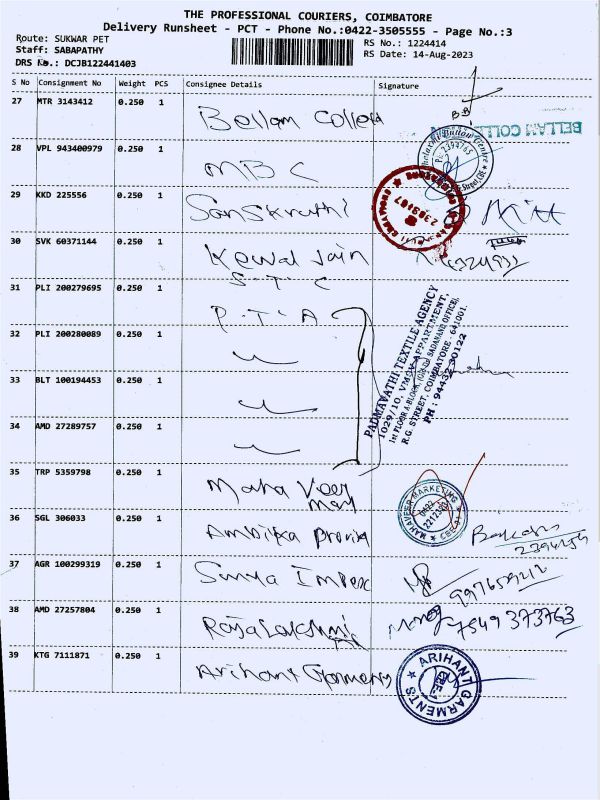 THE PROFESSIONAL COURIERS, COIMBATORE
Delivery Runsheet - PCT - Phone No.:0422-3505555 - Page No.:3
Route: SUKWAR PET
RS No.: 1224414
Staff: SABAPATHY
RS Date: 14-Aug-2023
DRS No.: DCJB122441403
S No Consignment No Weight PCS Consignee Details Signature
27 MTR 3143412 0.250 1 Bellam Colleti
BB
BELLAM COLLE
28 VPL 943400979 0.250 1 MBC
29 KKD 225556 0.250 1 Sanskruthi
30 SVK 60371144 0.250 1 Kewal Jain
S-T-C
31 PLI 200279695 0.250 1 P.T.A
32 PLI 200280089 0.250 1
PADMAVATHI TEXTILE AGENCY
1029/10, VMSK APPARTMENT,
1st FLOOR A-BLOCK, SADANAND OFFICE),
R.G. STREET, COIMBATORE - 641001.
PH : 9443230122
33 BLT 100194453 0.250 1
34 AMD 27289757 0.250 1
35 TRP 5359798 0.250 1 Maha Veer
Mar
MAHAVEER MARKETING
CBE-1
36 SGL 306033 0.250 1 Ambika
37 AGR 100299319 0.250 1 Surya Impex
38 AMD 27257804 0.250 1 Rajalakshmi
7549 373763
39 KTG 7111871 0.250 1 Arihant Garments
ARIHANT GARMENTS
CBE-1